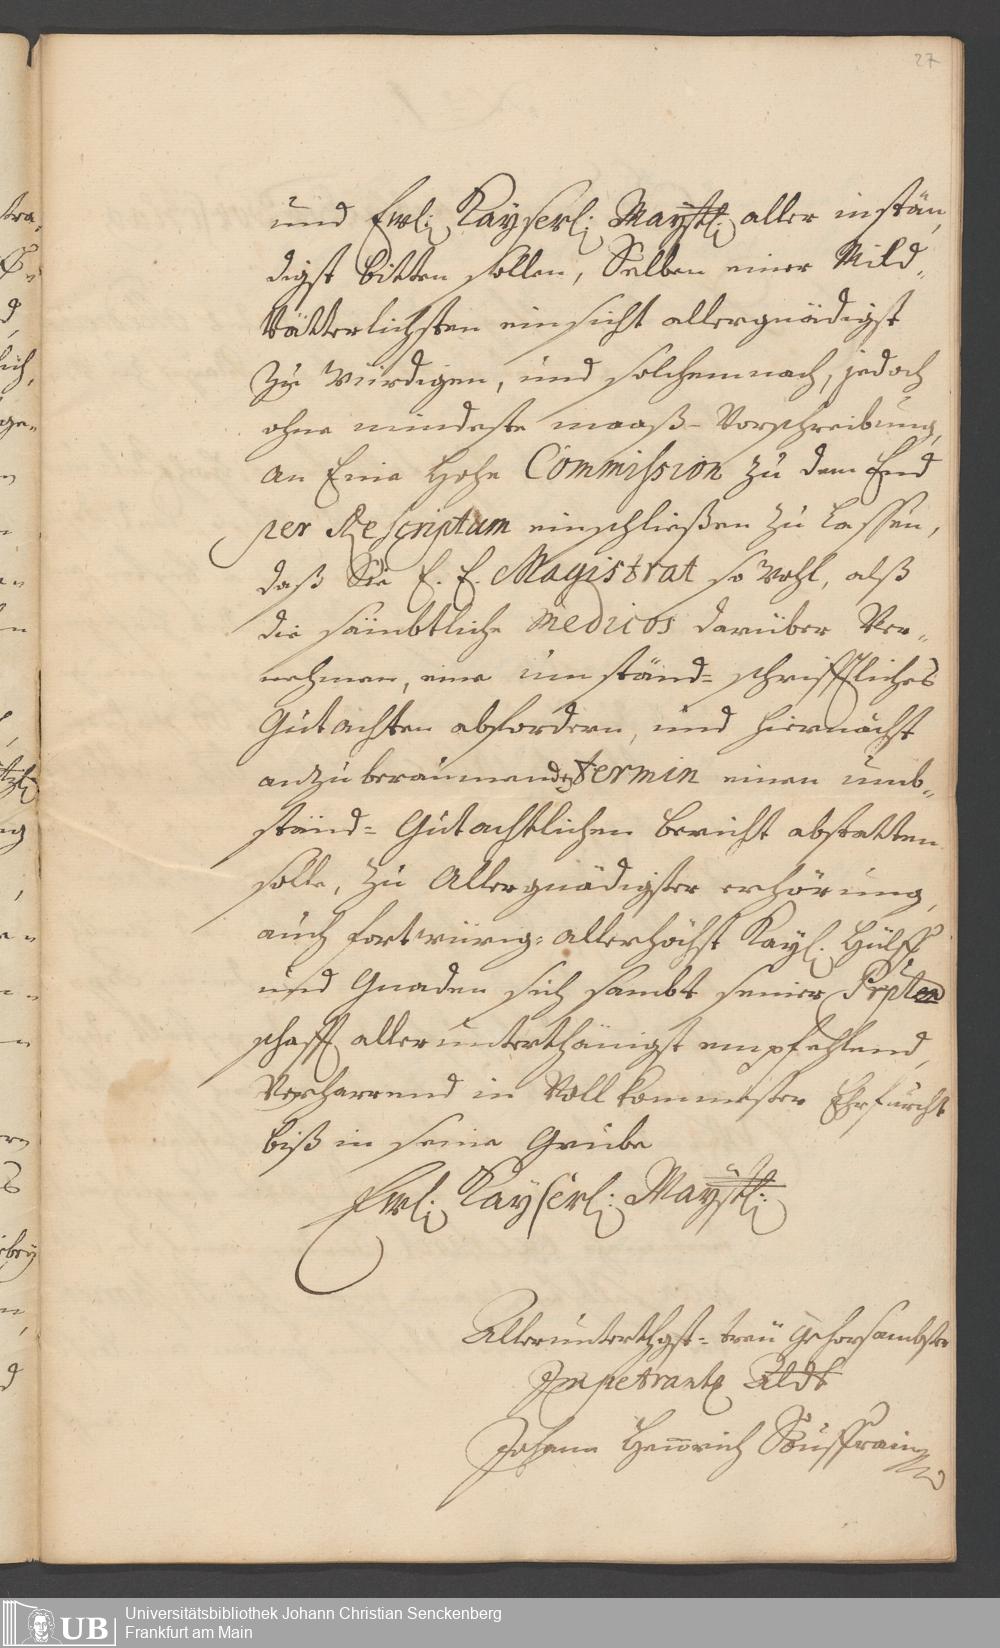 27
und Ewl: Kayserl: Maystl: aller instän,
digst bitten sollen, Selben einer Mild-
Vätterlichsten einsicht allergnädigst
zu würdigen, und solchemnach, jedoch
ohne mindeste maaß-Vorschreibung,
an Eine Hohe Commission zu dem End
per Rescriptum einschließen zu lassen,
daß Sie E. E. Magistrat so Wohl, alß
die sämbtliche Medicos darüber Ver-
nehmen, eine umständ= schrifftliches
Gutachten abfordern, und hiernächst
anzuberaumenden termin einen umb-
ständ= Gutachtlichen bericht abstatten
solle, zu Allergnädigster erhörung,
auch fortwürig= allerhöchst Kayl. Hülff
und Gnaden sich sambt seiner
schafft allerunterthänigst empfehlend,
Verharrend in Vollkommester Ehrfurcht
biß in seine Grube
Ewl: Kayserl: Maystl:
Allerunterthgst= treu gehorsambster
Impetrants Aldt
Johann Henrich Souffrain
Universitätsbibliothek Johann Christian Senckenberg
Frankfurt am Main
UB